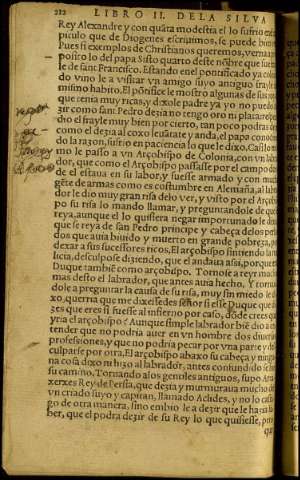 212 LIBRO II. DE LA SILVA
Rey Alexandre y con quãta modestia el lo sufrio
piculo que de Diogenes escriuimos, se puede bien
Pues si exemplos de Christianos queremos, vemos
postro lo del papa Sisto quarto deste nõbre que fue
le de sant Francisco. Estando en el pontificado ya
do vino le a visitar vn amigo suyo antiguo frayle
mismo habito. El põtifice le mostro algunas de sus
que tenia muy ricas, y dixole padre ya yo no puedo
zir como sant Pedro dezia no tengo oro ni plata respon
dio el frayle muy bien por cierto, tan poco podra
como el dezia al coxo leuãtate y anda, el papa
do la razon, sufrio en paciencia lo que le dixo.
mo le passo a vn Arçobispo de Colonia, con vn labra
dor, que como el Arçobispo passasse por el campo
de el estaua en su labor, y fuesse armado y con mucha
gẽte de armas como es costumbre en Alemaña, al labra
dor le dio muy gran risa de lo ver, y visto por el Arçobis
po su risa lo mando llamar, y preguntandole de que
reya, aunque el lo quisiera negar importunado le dixo
que se reya de san Pedro principe y cabeça delos
dos que auia biuido y muerto en grande pobreza, por
dexar a sus successores ricos. El arçobispo sintiendo la ma
licia, desculpose diziendo, que el andaua assi, porque era
Duque tambiẽ como arçobispo. Tornose a reyr mucho
mas desto el labrador, que antes auia hecho. Y
dole a preguntar la causa de su risa, muy sin miedo le di
xo, querria que me dixessedes señor si esse Duque que
zes que eres si fuesse al infierno por caso, dõde crees
yria el arçobispo? Aunque simple labrador biẽ dio a en
tender que no podria auer en vn hombre dos diuersas
professiones, y que no podria pecar por vna parte y
culparse por otra. El arçobispo abaxo su cabeça y ningu
na cosa dixo ni hizo al labrador, antes confundido
su camino. Tornando a los gentiles antiguos, supo Arta
xerxes Rey de Persia, que dezia y murmuraua mucho
vn criado suyo y capitan, llamado Acides, y no lo
go de otra manera, sino embio le a dezir que le hazia
ber, que el podra dezir de su Rey lo que quisiesse,